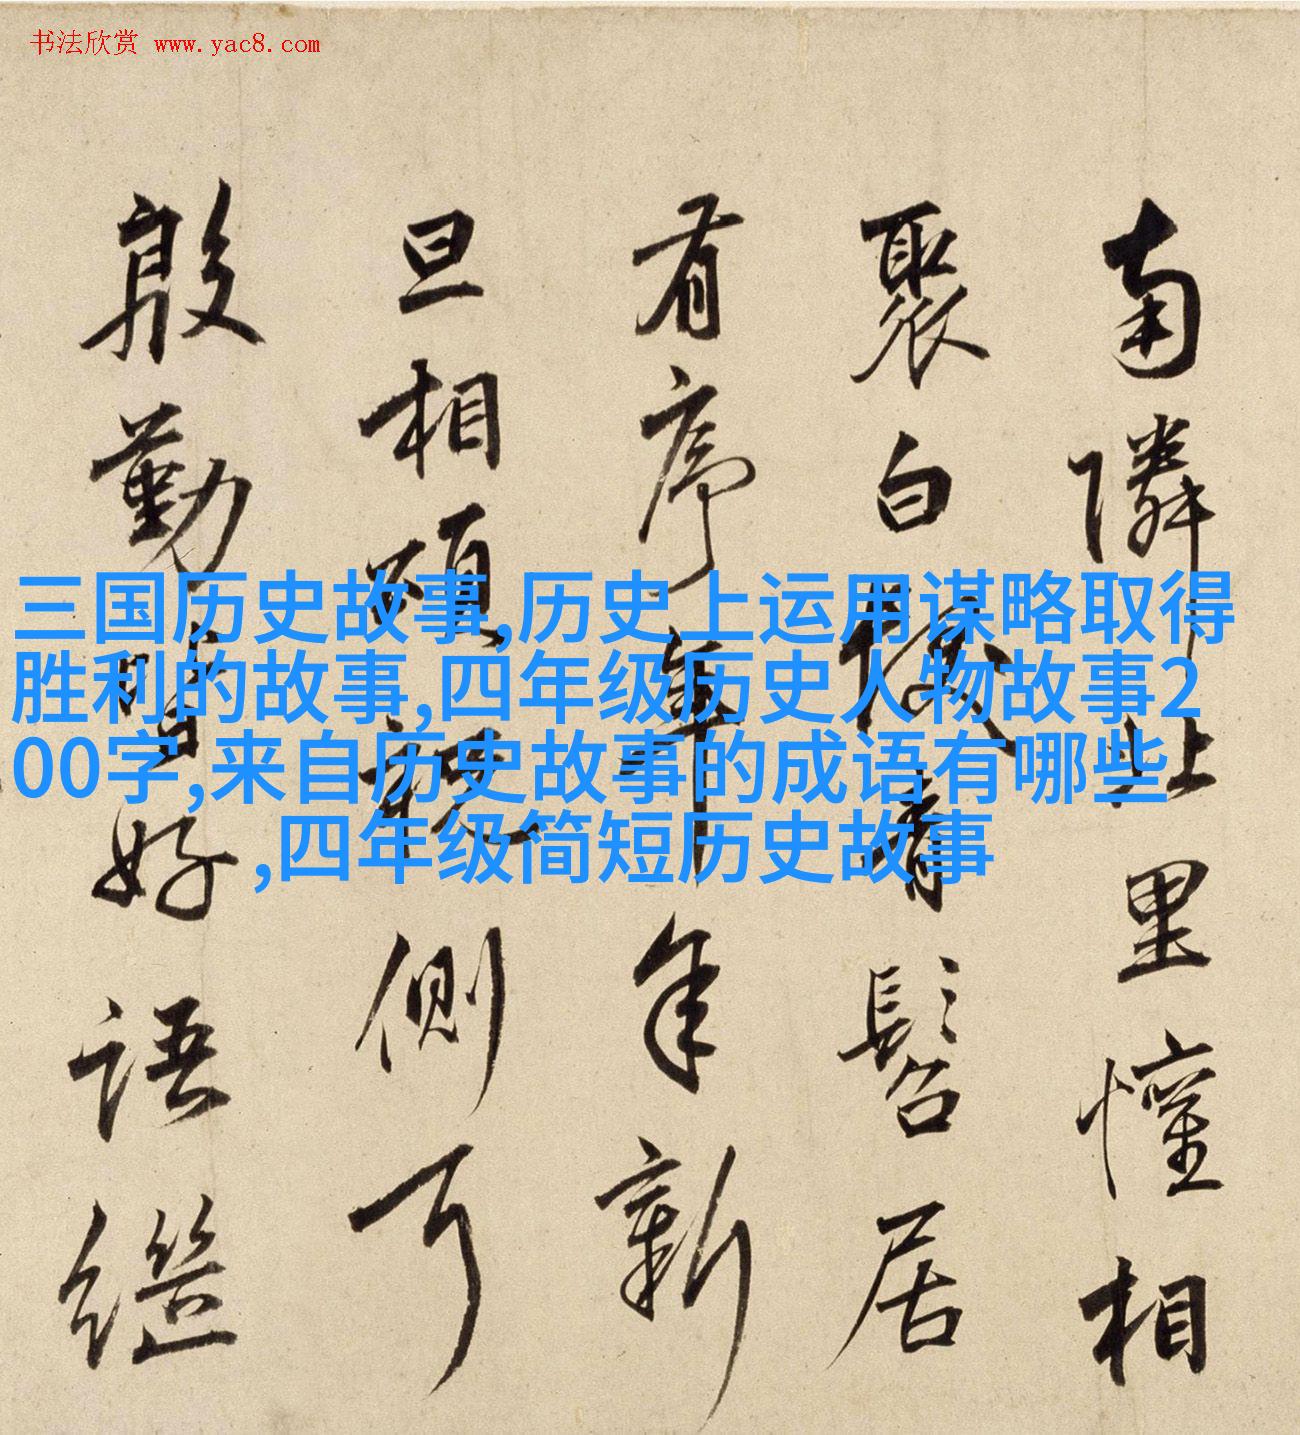 书法欣赏 www.yac8.com
三国历史故事,历史上运用谋略取得
胜利的故事,四年级历史人物故事2
00字,来自历史故事的成语有哪些
,四年级简短历史故事
南隣北里懽相
聚白
髫居
有序年年新
旦相頭側
殷勤好語